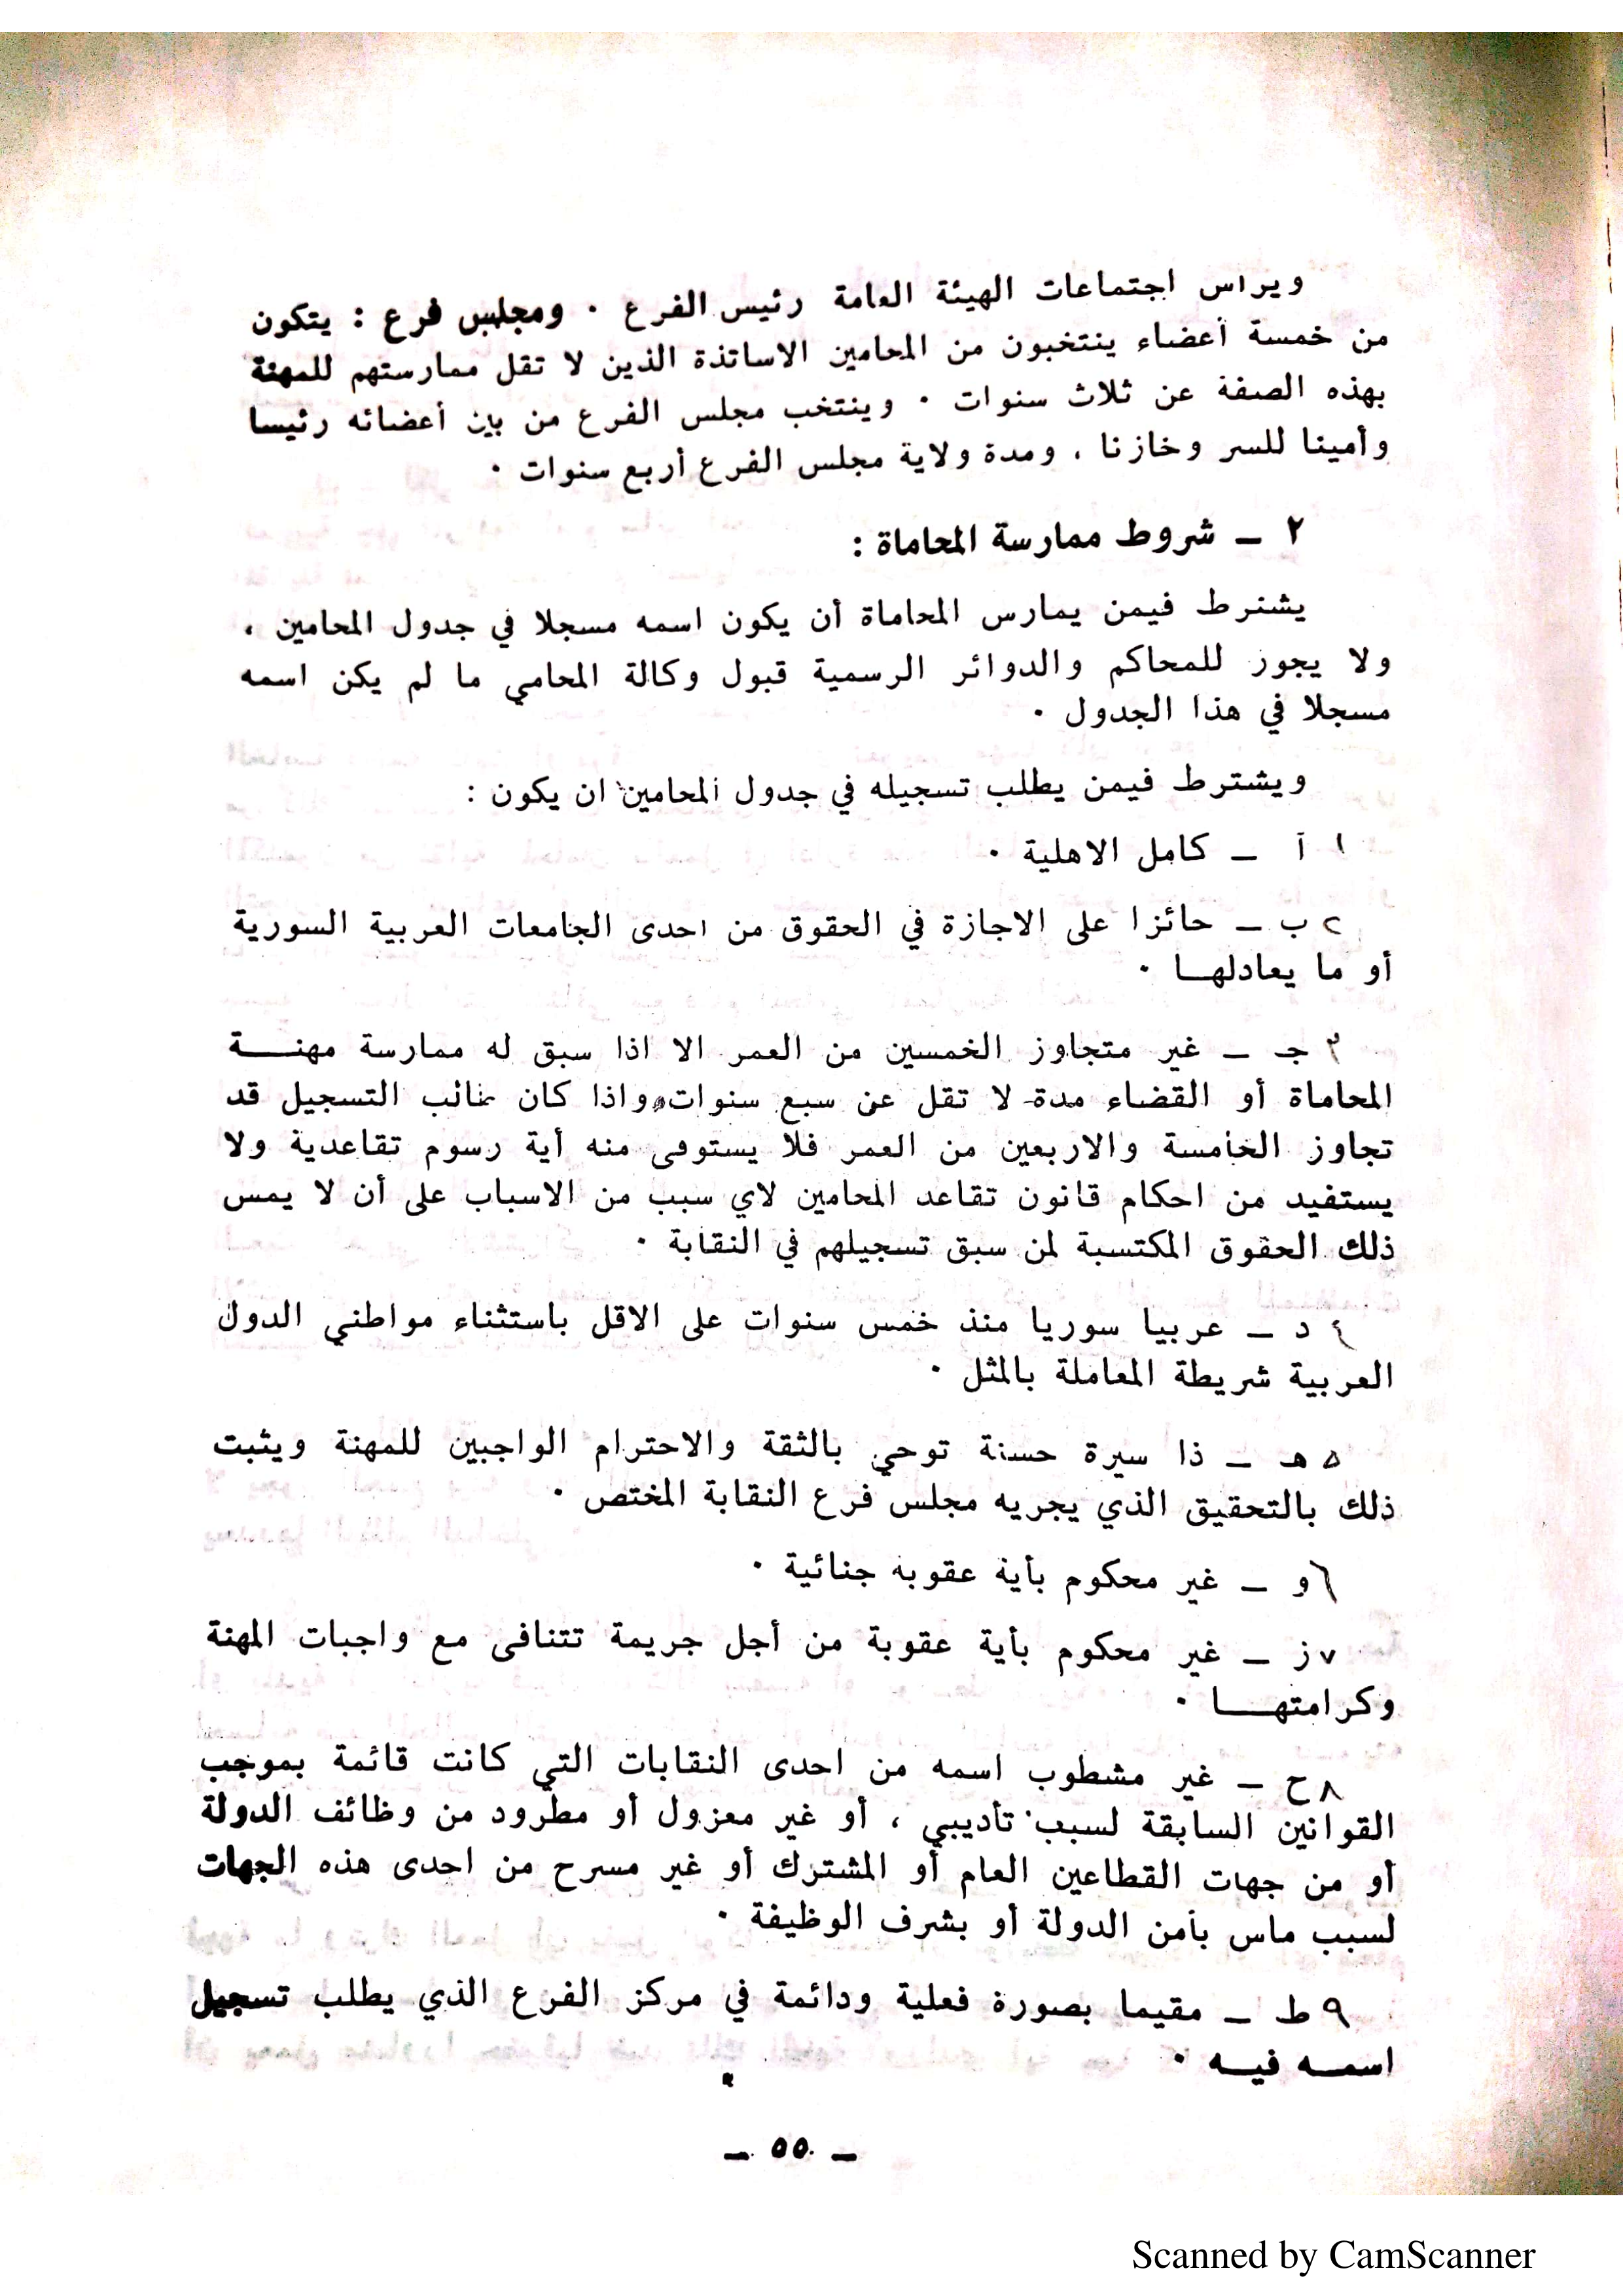 ويراس اجتماعات الهيئة العامة رئيس الفرع . ومجلس فرع : يتكون
من خمسة أعضاء ينتخبون من المحامين الاساتذة الذين لا تقل ممارستهم للمهنة
بهذه الصفة عن ثلاث سنوات . وينتخب مجلس الفرع من بين أعضائه رئيسا
وأمينا للسر وخازنا ، ومدة ولاية مجلس الفرع أربع سنوات .
٢ ـ شروط ممارسة المحاماة :
يشترط فيمن يمارس المحاماة أن يكون اسمه مسجلا في جدول المحامين ،
ولا يجوز للمحاكم والدوائر الرسمية قبول وكالة المحامي ما لم يكن اسمه
مسجلا في هذا الجدول .
ويشترط فيمن يطلب تسجيله في جدول المحامين ان يكون :
١ آ ـ كامل الاهلية .
٢ ب ـ حائزا على الاجازة في الحقوق من احدى الجامعات العربية السورية
أو ما يعادلهـا .
٣ جـ ـ غير متجاوز الخمسين من العمر الا اذا سبق له ممارسة مهنـة
المحاماة أو القضاء مدة لا تقل عن سبع سنوات، واذا كان طالب التسجيل قد
تجاوز الخامسة والاربعين من العمر فلا يستوفى منه أية رسوم تقاعدية ولا
يستفيد من احكام قانون تقاعد المحامين لاي سبب من الاسباب على أن لا يمس
ذلك الحقوق المكتسبة لمن سبق تسجيلهم في النقابة .
٤ د ـ عربيا سوريا منذ خمس سنوات على الاقل باستثناء مواطني الدول
العربية شريطة المعاملة بالمثل .
٥ هـ ـ ذا سيرة حسنة توحي بالثقة والاحترام الواجبين للمهنة ويثبت
ذلك بالتحقيق الذي يجريه مجلس فرع النقابة المختص .
٦ و ـ غير محكوم بأية عقوبة جنائية .
٧ ز ـ غير محكوم بأية عقوبة من أجل جريمة تتنافى مع واجبات المهنة
وكرامتهـا .
٨ ح ـ غير مشطوب اسمه من احدى النقابات التي كانت قائمة بموجب
القوانين السابقة لسبب تأديبي ، أو غير معزول أو مطرود من وظائف الدولة
أو من جهات القطاعين العام أو المشترك أو غير مسرح من احدى هذه الجهات
لسبب ماس بأمن الدولة أو بشرف الوظيفة .
٩ ط ـ مقيما بصورة فعلية ودائمة في مركز الفرع الذي يطلب تسجيل
اسمـه فيـه .
ـ ٥٥ ـ
Scanned by CamScanner